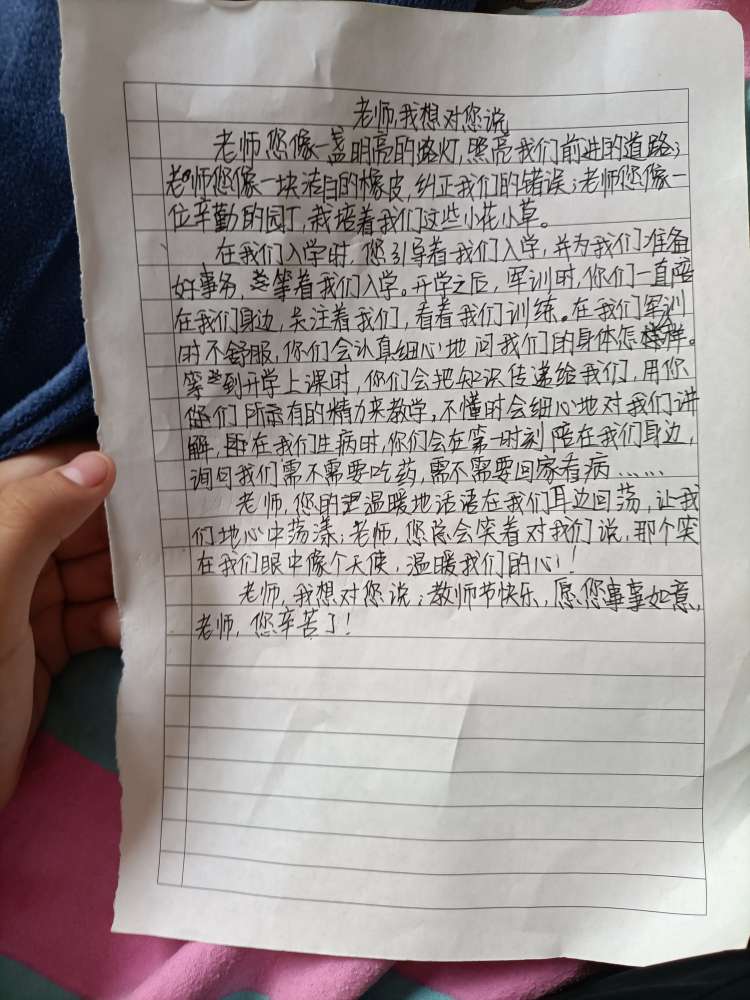 老师,我想对您说
老师您像一盏明亮的路灯,照亮我们前进的道路;
老师您像一块洁白的橡皮,纠正我们的错误;老师您像一
位辛勤的园丁,栽培着我们这些小花小草。
在我们入学时,您引导着我们入学,并为我们准备
好事务,等着我们入学。开学之后,军训时,你们一直陪
在我们身边,关注着我们,看着我们训练。在我们军训
时不舒服,你们会认真细心地问我们的身体怎样。
等到开学上课时,你们会把知识传递给我们,用你
们所有的精力来教学,不懂时会细心地对我们讲
解,在我们生病时,你们会在第一时刻陪在我们身边,
询问我们需不需要吃药,需不需要回家看病……
老师,您的温暖地话语在我们耳边回荡,让我
们地心中荡漾;老师,您总会笑着对我们说,那个笑
在我们眼中像个天使,温暖我们的心!
老师,我想对您说;教师节快乐,愿您事事如意,
老师,您辛苦了!